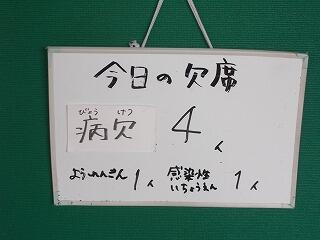 今日の欠席
びょう けつ
病欠 4人
ようれんきん 1人 感染性いちょうえん 1人